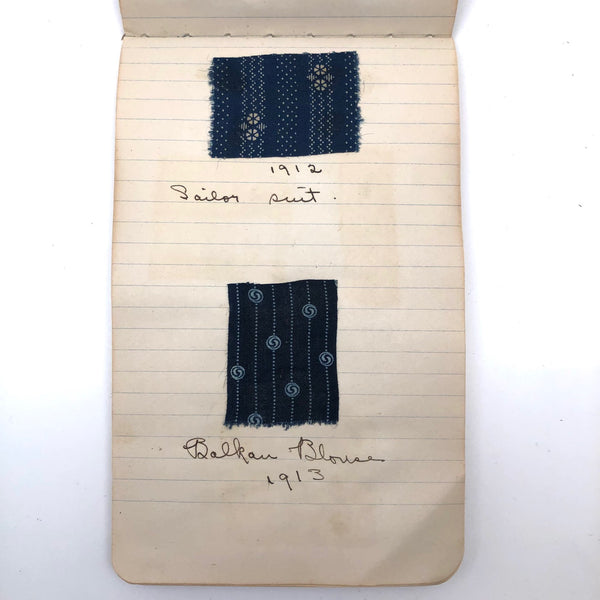 1912
Sailor suit.
Balkan Blouse
1913